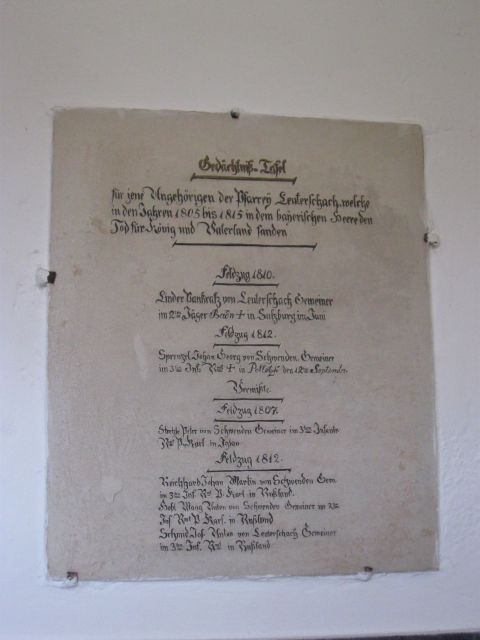 Gedächtniß-Tafel
für jene Angehörigen der Pfarrey Leuterschach, welche
in den Jahren 1805 bis 1815 in dem bayerischen Heere den
Tod für König und Vaterland fanden
Feldzug 1810.
Linder Pankratz von Leuterschach Gemeiner
im 2ten Jäger Baon + in Salzburg im Juni
Feldzug 1812.
Sprenzel Johan Georg von Schwenden. Gemeiner
im 3ten Inf. Rgt + in Pollozk den 12ten September
Vermißte
Feldzug 1807.
Peter von Schwenden Gemeiner im 3ten Infant.
Rgt P. Karl in
Feldzug 1812.
Reichhard Johan Martin von Schwenden Gem.
im 3ten Inf. Rgt P. Karl in Rußland.
Anton von Schwenden Gemeiner im
Inf Rgt P. Karl. in Rußland
Schmid Jos. Anton von Leuterschach Gemeiner
im 3ten Inf. Rgt in Rußland